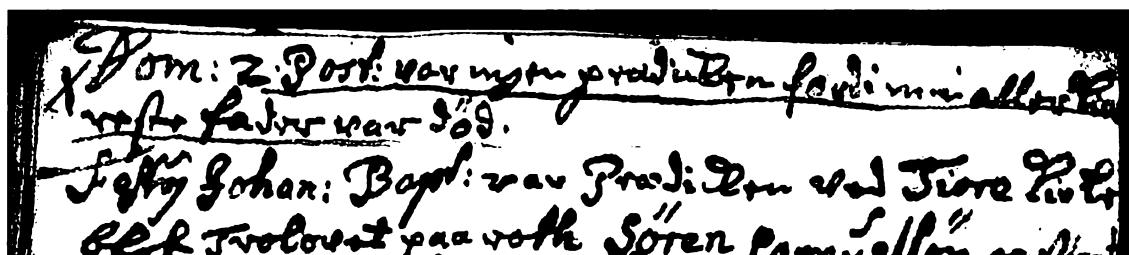 Dom: 2. Post: var ingen prædicken fordi min aller kiæ
reste fader var död.
Festo Johan: Bapt: var Prædicken ved Tiere Kirke
blef Trolovet paa roth Sören